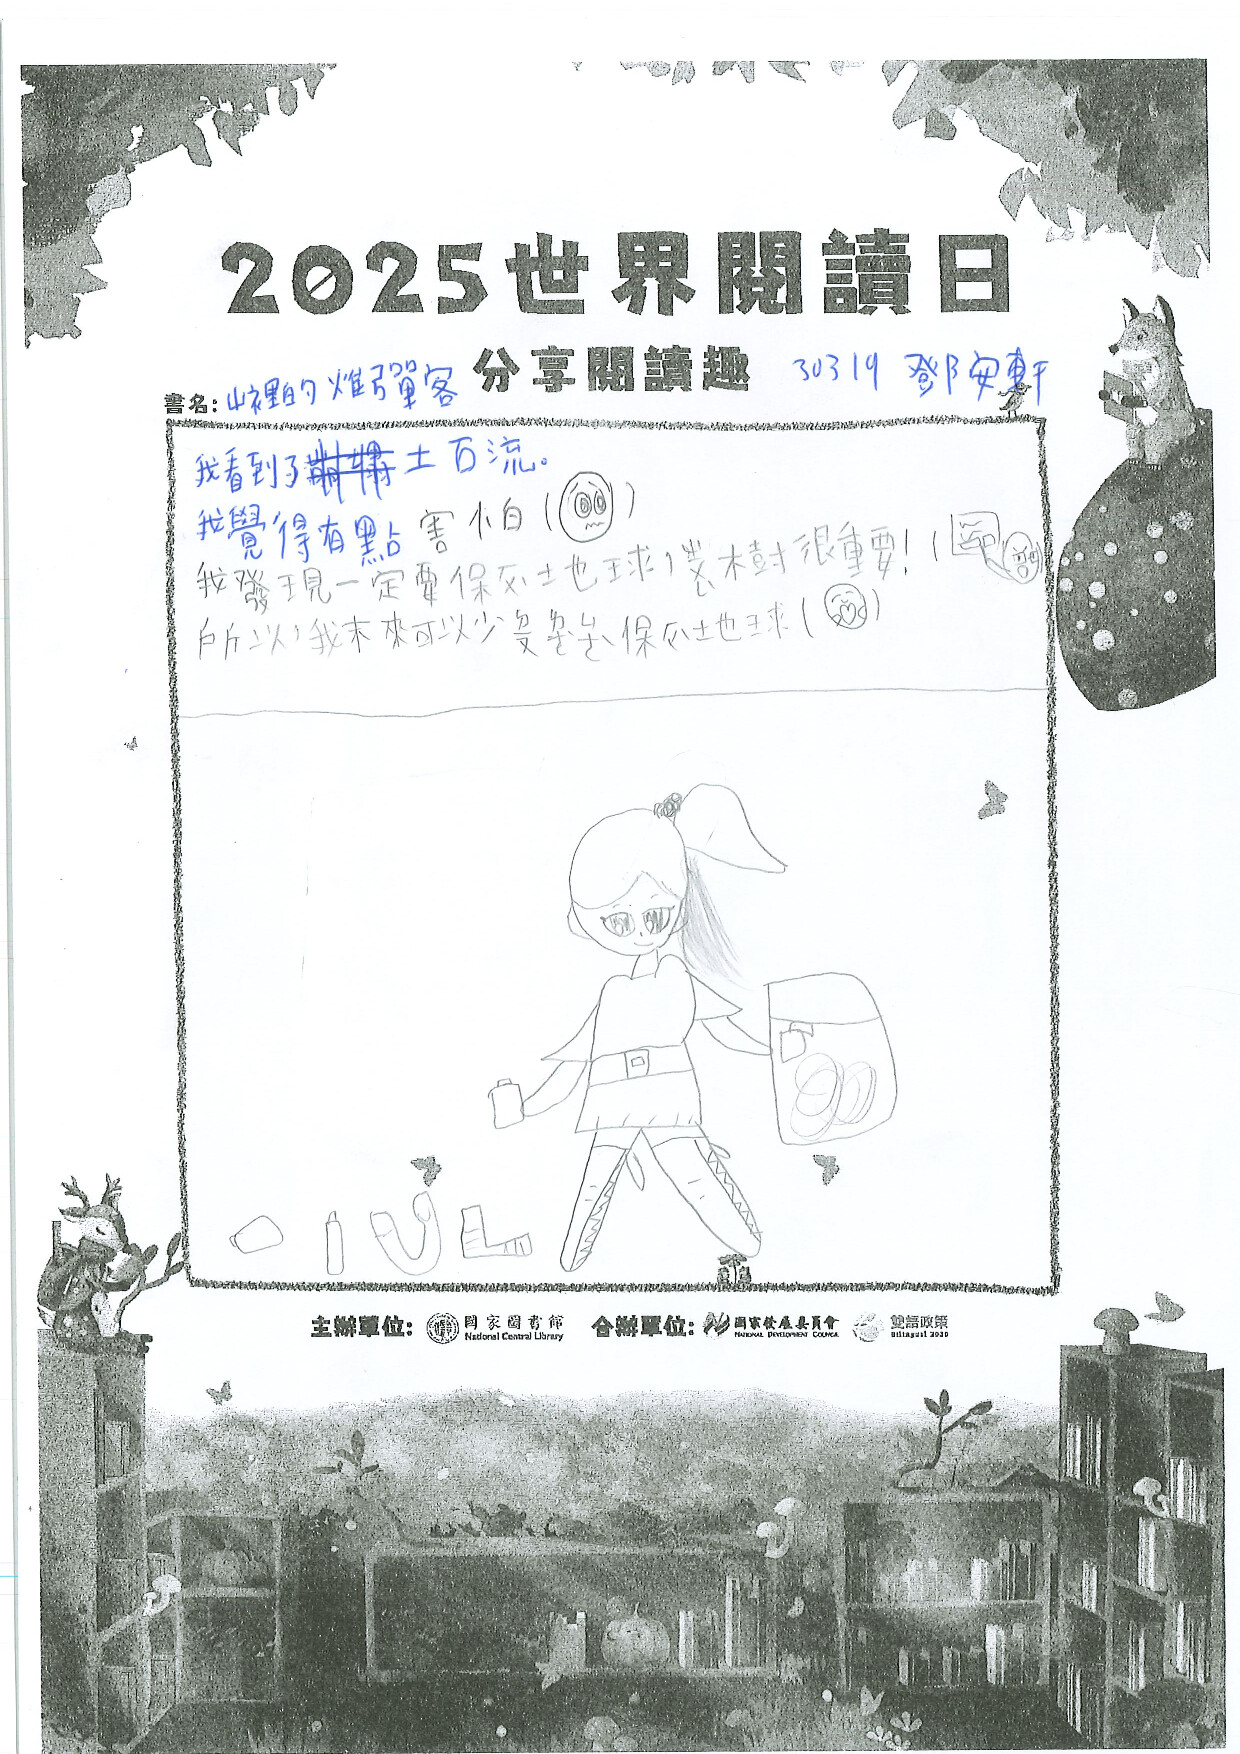 2025世界閱讀日
分享閱讀趣
30319 鄧安軒
書名:山裡的炸彈客
我看到了土石流。
我覺得有點害怕( )
我發現一定要保ㄏㄨ土地球,ㄗㄨㄥˋ木樹很重要!(
所以,我未來可以少 保ㄏㄨ土地球( )
主辦單位:國家圖書館 National Central Library 合辦單位:國家發展委員會 NATIONAL DEVELOPMENT COUNCIL 雙語政策 Bilingual 2030